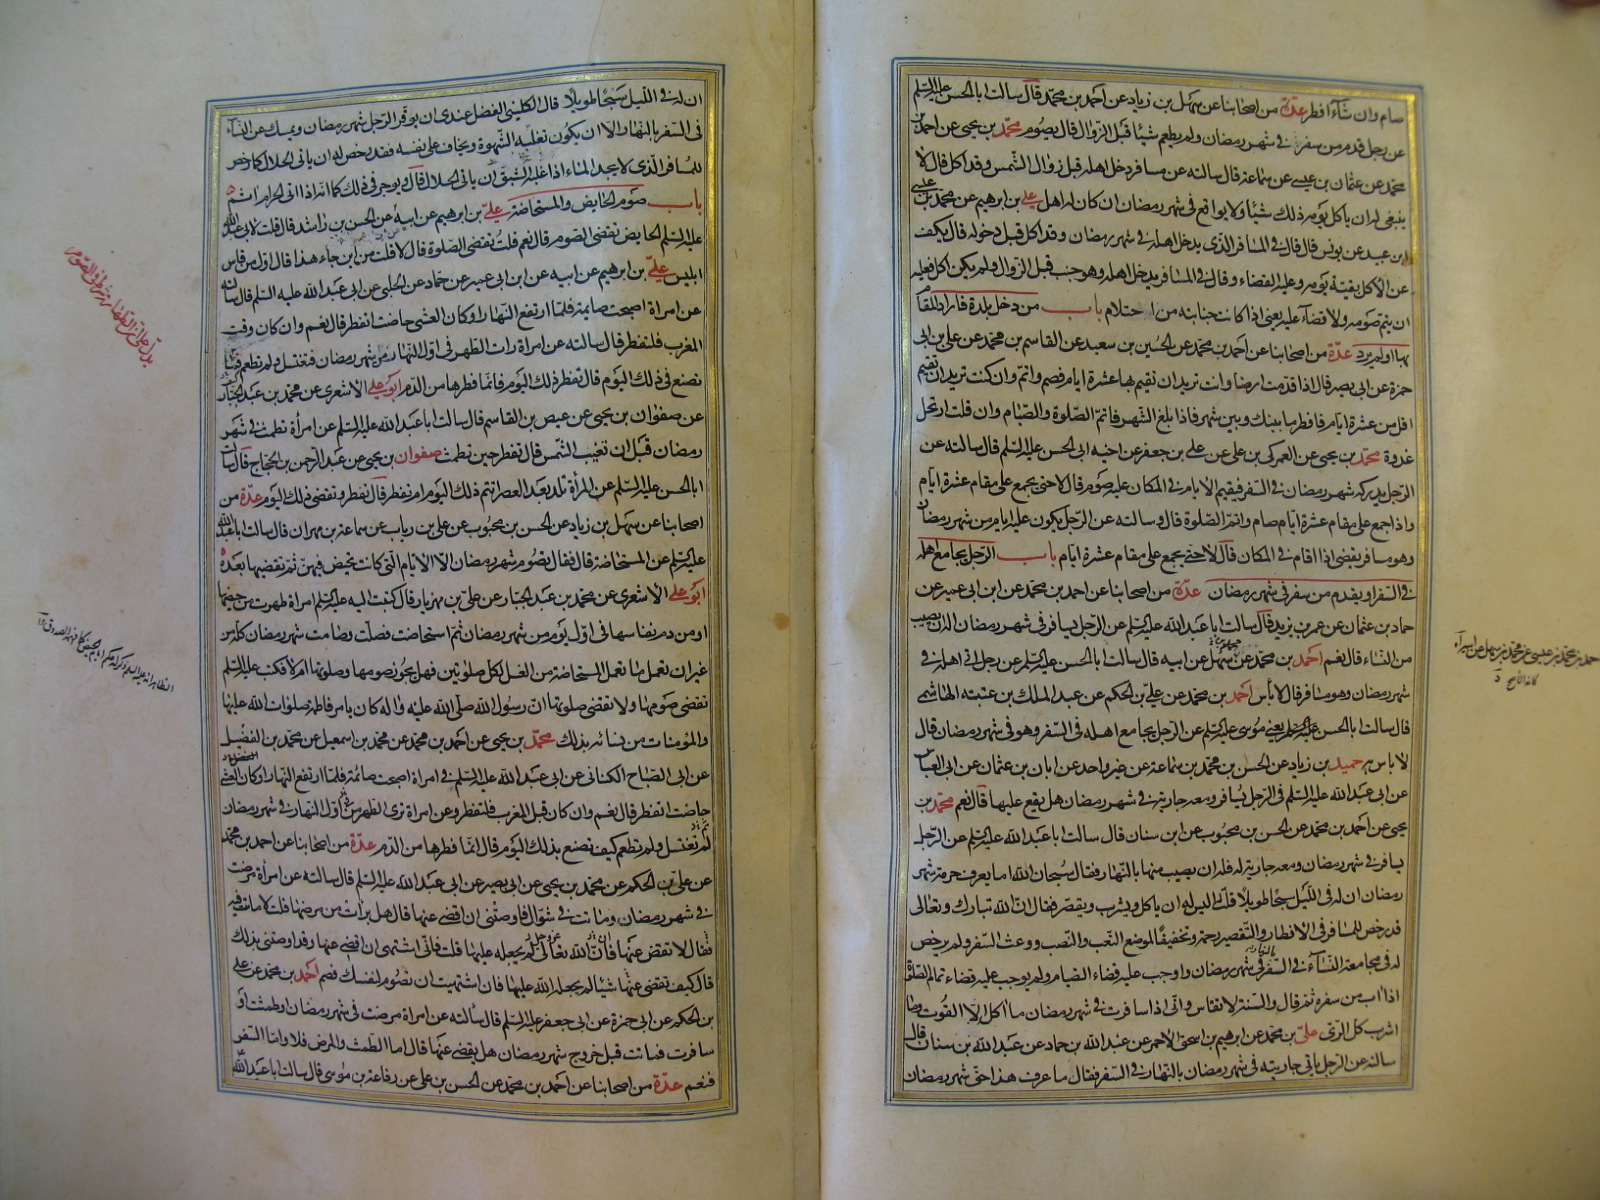 صام وان شاء افطر عدة من اصحابنا عن سهل بن زياد عن احمد بن محمد قال سالت ابا الحسن عليه السلم
عن رجل قدم من سفر في شهر رمضان ولم يطعم شيئا قبل الزوال قال يصوم محمد بن يحيى عن احمد بن
محمد عن عثمان بن عيسى عن سماعة قال سالته عن مسافر دخل اهله قبل زوال الشمس وقد اكل قال لا
ينبغي له ان ياكل يومه ذلك شيئا ولا يواقع في شهر رمضان ان كان له اهل علي بن ابرهيم عن محمد بن عيسى
بن عبيد عن يونس قال قال في المسافر الذي يدخل اهله في شهر رمضان وقد اكل قبل دخوله قال يكف
عن الاكل بقية يومه وعليه القضاء وقال في المسافر يدخل اهله وهو جنب قبل الزوال ولم يكن اكل فعليه
ان يتم صومه ولا قضاء عليه يعني اذا كانت جنابته من احتلام باب من دخل بلدة فاراد المقام
بها او لم يرد عدة من اصحابنا عن احمد بن محمد عن الحسين بن سعيد عن القاسم بن محمد عن علي بن ابي
حمزة عن ابي بصير قال اذا قدمت ارضا وانت تريد ان تقيم بها عشرة ايام فصم واتم وان كنت تريد ان تقيم
اقل من عشرة ايام فافطر ما بينك وبين شهر فاذا بلغ الشهر فاتم الصلوة والصيام وان قلت ارتحل
غدوة محمد بن يحيى عن العمركي بن علي عن علي بن جعفر عن اخيه ابي الحسن عليه السلم قال سالته عن
الرجل يدركه شهر رمضان في السفر فيقيم الايام في المكان عليه صوم قال لا حتى يجمع على مقام عشرة ايام
واذا اجمع على مقام عشرة ايام صام واتم الصلوة قال وسالته عن الرجل يكون عليه ايام من شهر رمضان
وهو مسافر يقضي اذا اقام في المكان قال لا حتى يجمع على مقام عشرة ايام باب الرجل يجامع اهله
في السفر او يقدم من سفر في شهر رمضان عدة من اصحابنا عن احمد بن محمد عن ابن ابي عمير عن
حماد بن عثمان عن عمر بن يزيد قال سالت ابا عبد الله عليه السلم عن الرجل يسافر في شهر رمضان اله ان يصيب
من النساء قال نعم احمد بن محمد عن سهل عن ابيه قال سالت ابا الحسن عليه السلم عن رجل اتى اهله في
شهر رمضان وهو مسافر قال لا بأس احمد بن محمد عن علي بن الحكم عن عبد الملك بن عتبة الهاشمي
قال سالت ابا الحسن عليه السلم يعني موسى عليه السلم عن الرجل يجامع اهله في السفر وهو في شهر رمضان قال
لا باس به حميد بن زياد عن الحسن بن محمد بن سماعة عن غير واحد عن ابان بن عثمان عن ابي العباس
عن ابي عبد الله عليه السلم في الرجل يسافر ومعه جارية في شهر رمضان هل يقع عليها قال نعم محمد بن
يحيى عن احمد بن محمد عن الحسن بن محبوب عن ابن سنان قال سالت ابا عبد الله عليه السلم عن الرجل
يسافر في شهر رمضان ومعه جارية له فله ان يصيب منها بالنهار فقال سبحان الله اما يعرف حرمة شهر
رمضان ان له في الليل سبحا طويلا قلت اليس له ان ياكل ويشرب ويقصر فقال ان الله تبارك وتعالى
قد رخص للمسافر في الافطار والتقصير رحمة وتخفيفا لموضع التعب والنصب ووعث السفر ولم يرخص
له في مجامعة النساء في السفر بالنهار في شهر رمضان واوجب عليه قضاء الصيام ولم يوجب عليه قضاء تمام الصلوة
اذا اب من سفره ثم قال والسنة لا تقاس واني اذا سافرت في شهر رمضان ما اكل الا القوت وما
اشرب كل الري علي بن محمد عن ابرهيم بن اسحق الاحمر عن عبد الله بن حماد عن عبد الله بن سنان قال
سالته عن الرجل ياتي جاريته في شهر رمضان بالنهار في السفر فقال ما عرف هذا حق شهر رمضان
ان له في الليل سبحا طويلا قال الكليني الفضل عندي ان يوقر الرجل شهر رمضان ويمسك عن النساء
في السفر بالنهار الا ان يكون تغلبه الشهوة ويخاف على نفسه فقد رخص له ان ياتي الحلال كما رخص
للمسافر الذي لا يجد الماء اذا غلبه الشبق ان ياتي الحلال قال ويوجر في ذلك كما انه اذا اتى الحرام اثم
باب صوم الحايض والمستحاضة علي بن ابرهيم عن ابيه عن الحسن بن راشد قال قلت لابي عبد الله
عليه السلم الحايض تقضي الصوم قال نعم قلت تقضي الصلوة قال لا قلت من اين جاء هذا قال اول من قاس
ابليس علي بن ابرهيم عن ابيه عن ابن ابي عمير عن حماد عن الحلبي عن ابي عبد الله عليه السلم قال سالته
عن امراة اصبحت صايمة فلما ارتفع النهار او كان العشي حاضت اتفطر قال نعم وان كان وقت
المغرب فلتفطر قال سالته عن امراة رات الطهر في اول النهار من شهر رمضان فتغتسل ولم تطعم فما
تصنع في ذلك اليوم قال تفطر ذلك اليوم فانما فطرها من الدم ابو علي الاشعري عن محمد بن عبد الجبار
عن صفوان بن يحيى عن عيص بن القاسم قال سالت ابا عبد الله عليه السلم عن امرأة تطمث في شهر
رمضان قبل ان تغيب الشمس قال تفطر حين تطمث صفوان بن يحيى عن عبد الرحمن بن الحجاج قال سالت
ابا الحسن عليه السلم عن المرأة تلد بعد العصر اتتم ذلك اليوم ام تفطر قال تفطر وتقضي ذلك اليوم عدة من
اصحابنا عن سهل بن زياد عن الحسن بن محبوب عن علي بن رياب عن سماعة بن مهران قال سالت ابا عبد الله
عليه السلم عن المستحاضة قال فقال تصوم شهر رمضان الا الايام التي كانت تحيض فيهن ثم تقضيها بعده
ابو علي الأشعري عن محمد بن عبد الجبار عن علي بن مهزيار قال كتبت اليه عليه السلم امراة طهرت من حيضها
او من دم نفاسها في اول يوم من شهر رمضان ثم استحاضت فصلت وصامت شهر رمضان كله من
غير ان تعمل ما تعمل المستحاضة من الغسل لكل صلوتين فهل يجوز صومها وصلوتها ام لا فكتب عليه السلم
تقضي صومها ولا تقضي صلوتها ان رسول الله صلى الله عليه واله كان يامر فاطمة صلوات الله عليها
والمؤمنات من نسائه بذلك محمد بن يحيى عن احمد بن محمد عن محمد بن اسمعيل عن محمد بن الفضيل
عن ابي الصباح الكناني عن ابي عبد الله عليه السلم في امراة اصبحت صائمة فلما ارتفع النهار او كان العشي
حاضت اتفطر قال نعم وان كان قبل المغرب فلتفطر وعن امراة ترى الطهر من اول النهار في شهر رمضان
لم تغتسل ولم تطعم كيف تصنع بذلك اليوم قال انما فطرها من الدم عدة من اصحابنا عن احمد بن محمد
عن علي بن الحكم عن محمد بن يحيى عن ابي بصير عن ابي عبد الله عليه السلم قال سالته عن امرأة مرضت
في شهر رمضان وماتت في شوال فاوصتني ان اقضي عنها قال هل برأت من مرضها قلت لا ماتت فيه
فقال لا تقض عنها فان الله تعالى لم يجعله عليها قلت فاني اشتهى ان اقضي عنها وقد اوصتني بذلك
قال كيف تقضي عنها شيئا لم يجعله الله عليها فان اشتهيت ان تصوم لنفسك فصم احمد بن محمد عن علي
بن الحكم عن ابي حمزة عن ابي جعفر عليه السلم قال سألته عن امراة مرضت في شهر رمضان او طمثت او
سافرت فماتت قبل خروج شهر رمضان هل يقضي عنها قال اما الطمث والمرض فلا واما السفر
فنعم عدة من اصحابنا عن احمد بن محمد عن الحسن بن علي عن رفاعة بن موسى قال سالت ابا عبد الله